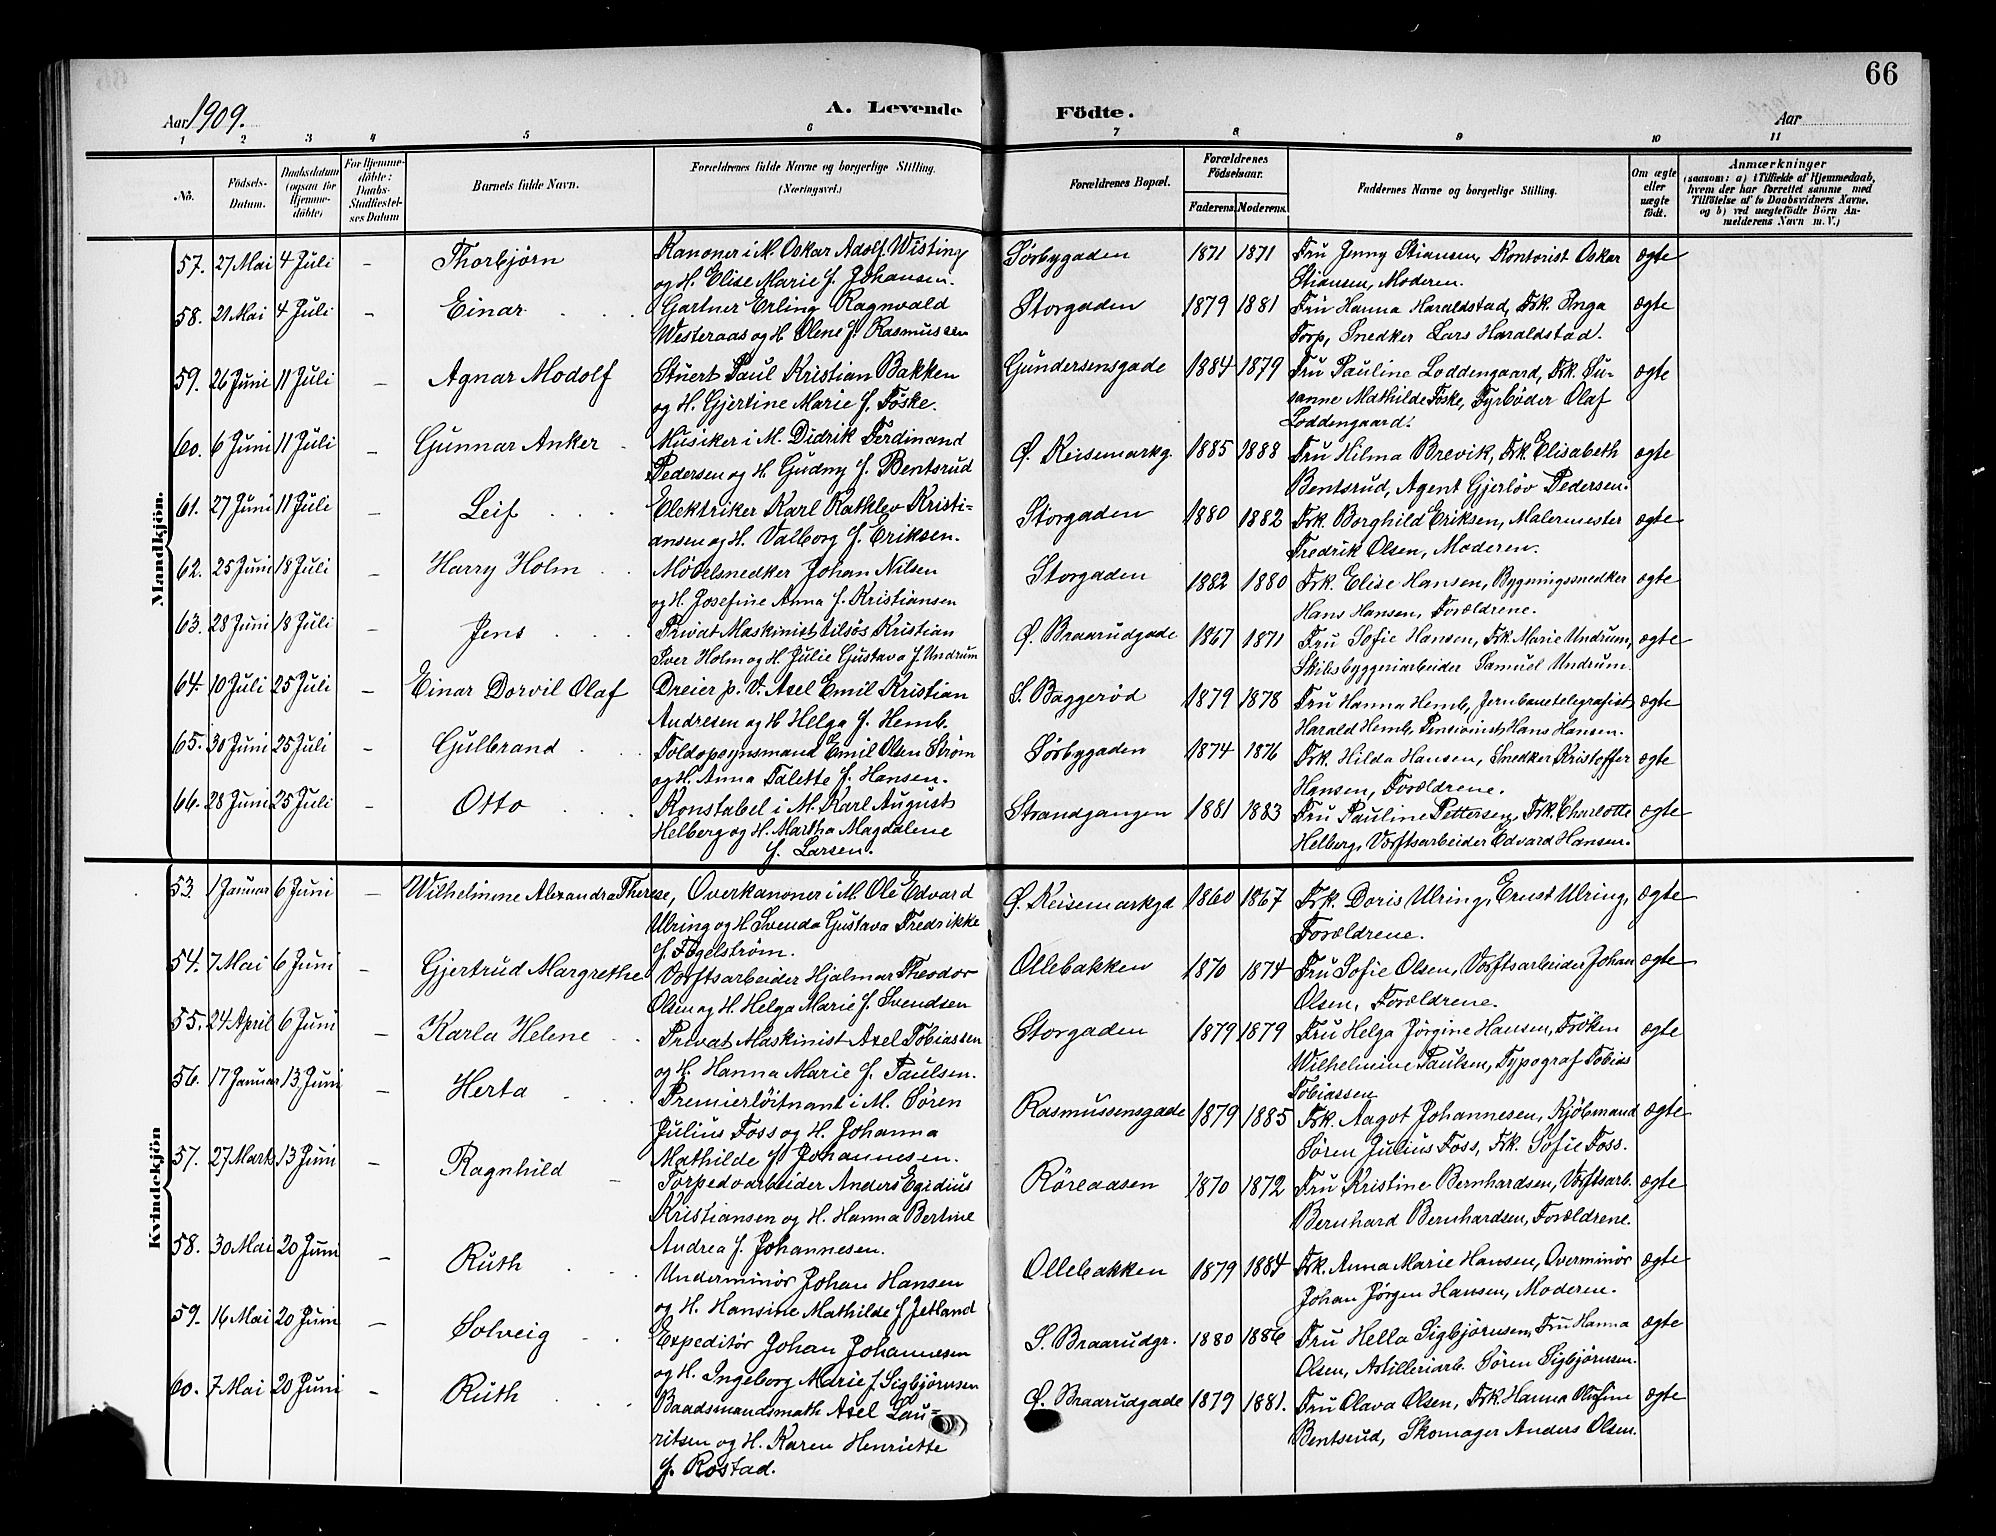 66
Aar 1909.
A. Levende Födte.
Aar
1 2 3 4 5 6 7 8 9 10 11
No.
Födsels-Datum.
Daabsdatum (ogsaa for Hjemme-döbte)
For Hjemme-döbte: Daabs-Stadfæstel-ses Datum
Barnets fulde Navn.
Forældrenes fulde Navne og borgerlige Stilling. (Næringsvei.)
Forældrenes Bopæl.
Forældrenes Födselsaar.
Faderens. Moderens.
Faddernes Navne og borgerlige Stilling.
Om ægte eller uægte født.
Anmærkninger
(saasom: a) i Tilfælde af Hjemmedaab, hvem der har forrettet samme med Tilföielse af to Daabsvidners Navne. og b) ved uægtefödte Börn An-melderens Navn m. V.)
Mandkjön.
57. 27 Mai 4 Juli - Thorbjørn Kanoner i M. Oskar Adolf Wisting Sørbygaden 1871 1871 Fru Jenny Stiansen, Kontorist Oskar ægte
og H. Elise Marie f. Johansen. Stiansen, Moderen.
58. 21 Mai 4 Juli - Einar Gartner Erling Ragnvald Storgaden 1879 1881 Fru Hanna Haraldstad, Frk. Inga ægte
Westeraas og H. Olene f. Rasmussen Torp, Snedker Lars Haraldstad.
59. 26 Juni 11 Juli - Agnar Modolf Stuert Paul Kristian Bakken Gundersensgade 1884 1879 Fru Pauline Loddengaard, Frk. Su- ægte
og H. Gjertine Marie f. Foske. sanne Mathilde Foske, Fyrbøder Olaf
Loddengaard.
60. 6 Juni 11 Juli - Gunnar Anker Musiker i M. Didrik Ferdinand Ø. Keisemarkg. 1885 1888 Fru Hilma Brevik, Frk. Elisabeth ægte
Pedersen og H. Gudny f. Bentsrud Bentsrud, Agent Gjerløv Pedersen.
61. 27 Juni 11 Juli - Leif Elektriker Karl Rathlev Kristi- Storgaden 1880 1882 Frk. Borghild Eriksen, Malermester ægte
ansen og H. Valborg f. Eriksen. Fredrik Olsen, Moderen.
62. 25 Juni 18 Juli - Harry Holm Møbelsnedker Johan Nilsen Storgaden 1882 1880 Frk. Elise Hansen, Bygningssnedker ægte
og H. Josefine Anna f. Kristiansen Hans Hansen, Forældrene.
63. 28 Juni 18 Juli - Jens Privat Maskinist tilsøs Kristian Ø. Braarudgade 1867 1871 Fru Sofie Hansen, Frk. Marie Undrum, ægte
Iver Holm og H. Julie Gustava f. Undrum Skibsbyggeriarbeider Samuel Undrum.
64. 10 Juli 25 Juli - Einar Dorvil Olaf Dreier p. V. Axel Emil Kristian S. Baggerød 1879 1878 Fru Hanna Hemb, Jernbanetelegrafist ægte
Andresen og H Helga f. Hemb. Harald Hemb, Pensionist Hans Hansen.
65. 30 Juni 25 Juli - Gulbrand Toldopsynsmand Emil Olsen Strøm Sørbygaden 1874 1876 Frk. Hilda Hansen, Snedker Kristoffer ægte
og H. Anna Talette f. Hansen. Hansen, Forældrene.
66. 28 Juni 25 Juli - Otto Konstabel i M. Karl August Strandgangen 1881 1883 Fru Pauline Pettersen, Frk. Charlotte ægte
Helberg og H. Martha Magdalene Helberg, Værftsarbeider Edvard Hansen.
f. Larsen.
Kvindekjön
53. 1 Januar 6 Juni - Wilhelmine Alexandra Therese, Overkanoner i M. Ole Edvard Ø. Keisemarkgd 1860 1867 Frk. Doris Ulring, Ernst Ulring, ægte
Ulring og H Svenda Gustava Fredrikke Forældrene.
f. Fogelstrøm.
54. 7 Mai 6 Juni - Gjertrud Margrethe Værftsarbeider Hjalmar Theodor Ollebakken 1870 1874 Fru Sofie Olsen, Værftsarbeider Johan ægte
Olsen og H. Helga Marie f. Svendsen Olsen, Forældrene.
55. 24 April 6 Juni - Karla Helene Privat Maskinist Axel Tobiassen Storgaden 1879 1879 Fru Helga Jørgine Hansen, Frøken ægte
og H. Hanna Marie f. Paulsen. Wilhelmine Paulsen, Typograf Tobias
Tobiassen
56. 17 Januar 13 Juni - Herta Premierløitnant i M. Søren Rasmussensgade 1879 1885 Frk. Aagot Johannesen, Kjøbmand ægte
Julius Foss og H. Johanna Søren Julius Foss, Frk. Sofie Foss.
Mathilde f. Johannesen.
57. 27 Marts 13 Juni - Ragnhild Torpedoarbeider Anders Egidius Röreaasen 1870 1872 Fru Kristine Bernhardsen, Værftsarb. ægte
Kristiansen og H. Hanna Bertine Bernhard Bernhardsen, Forældrene.
Andrea f. Johannesen.
58. 30 Mai 20 Juni - Ruth Underminør Johan Hansen Ollebakken 1879 1884 Frk. Anna Marie Hansen, Overminør ægte
og H. Hansine Mathilde f. Jetland Johan Jørgen Hansen, Moderen.
59. 16 Mai 20 Juni - Solveig Expeditör Johan Johannesen S. Braarudgr. 1880 1886 Fru Hella Sigbjörnsen, Fru Hanna ægte
og H. Ingeborg Marie f. Sigbjørnsen Olsen, Artilleriarb. Søren Sigbjørnsen.
60. 7 Mai 20 Juni - Ruth Baadsmandsmath Axel Lau- Ø. Braarudgade 1879 1881. Fru Olava Olsen, Frk. Hanna Olufine ægte
ritsen og H. Karen Henriette Bentsrud, Skomager Anders Olsen.
f. Rostad.